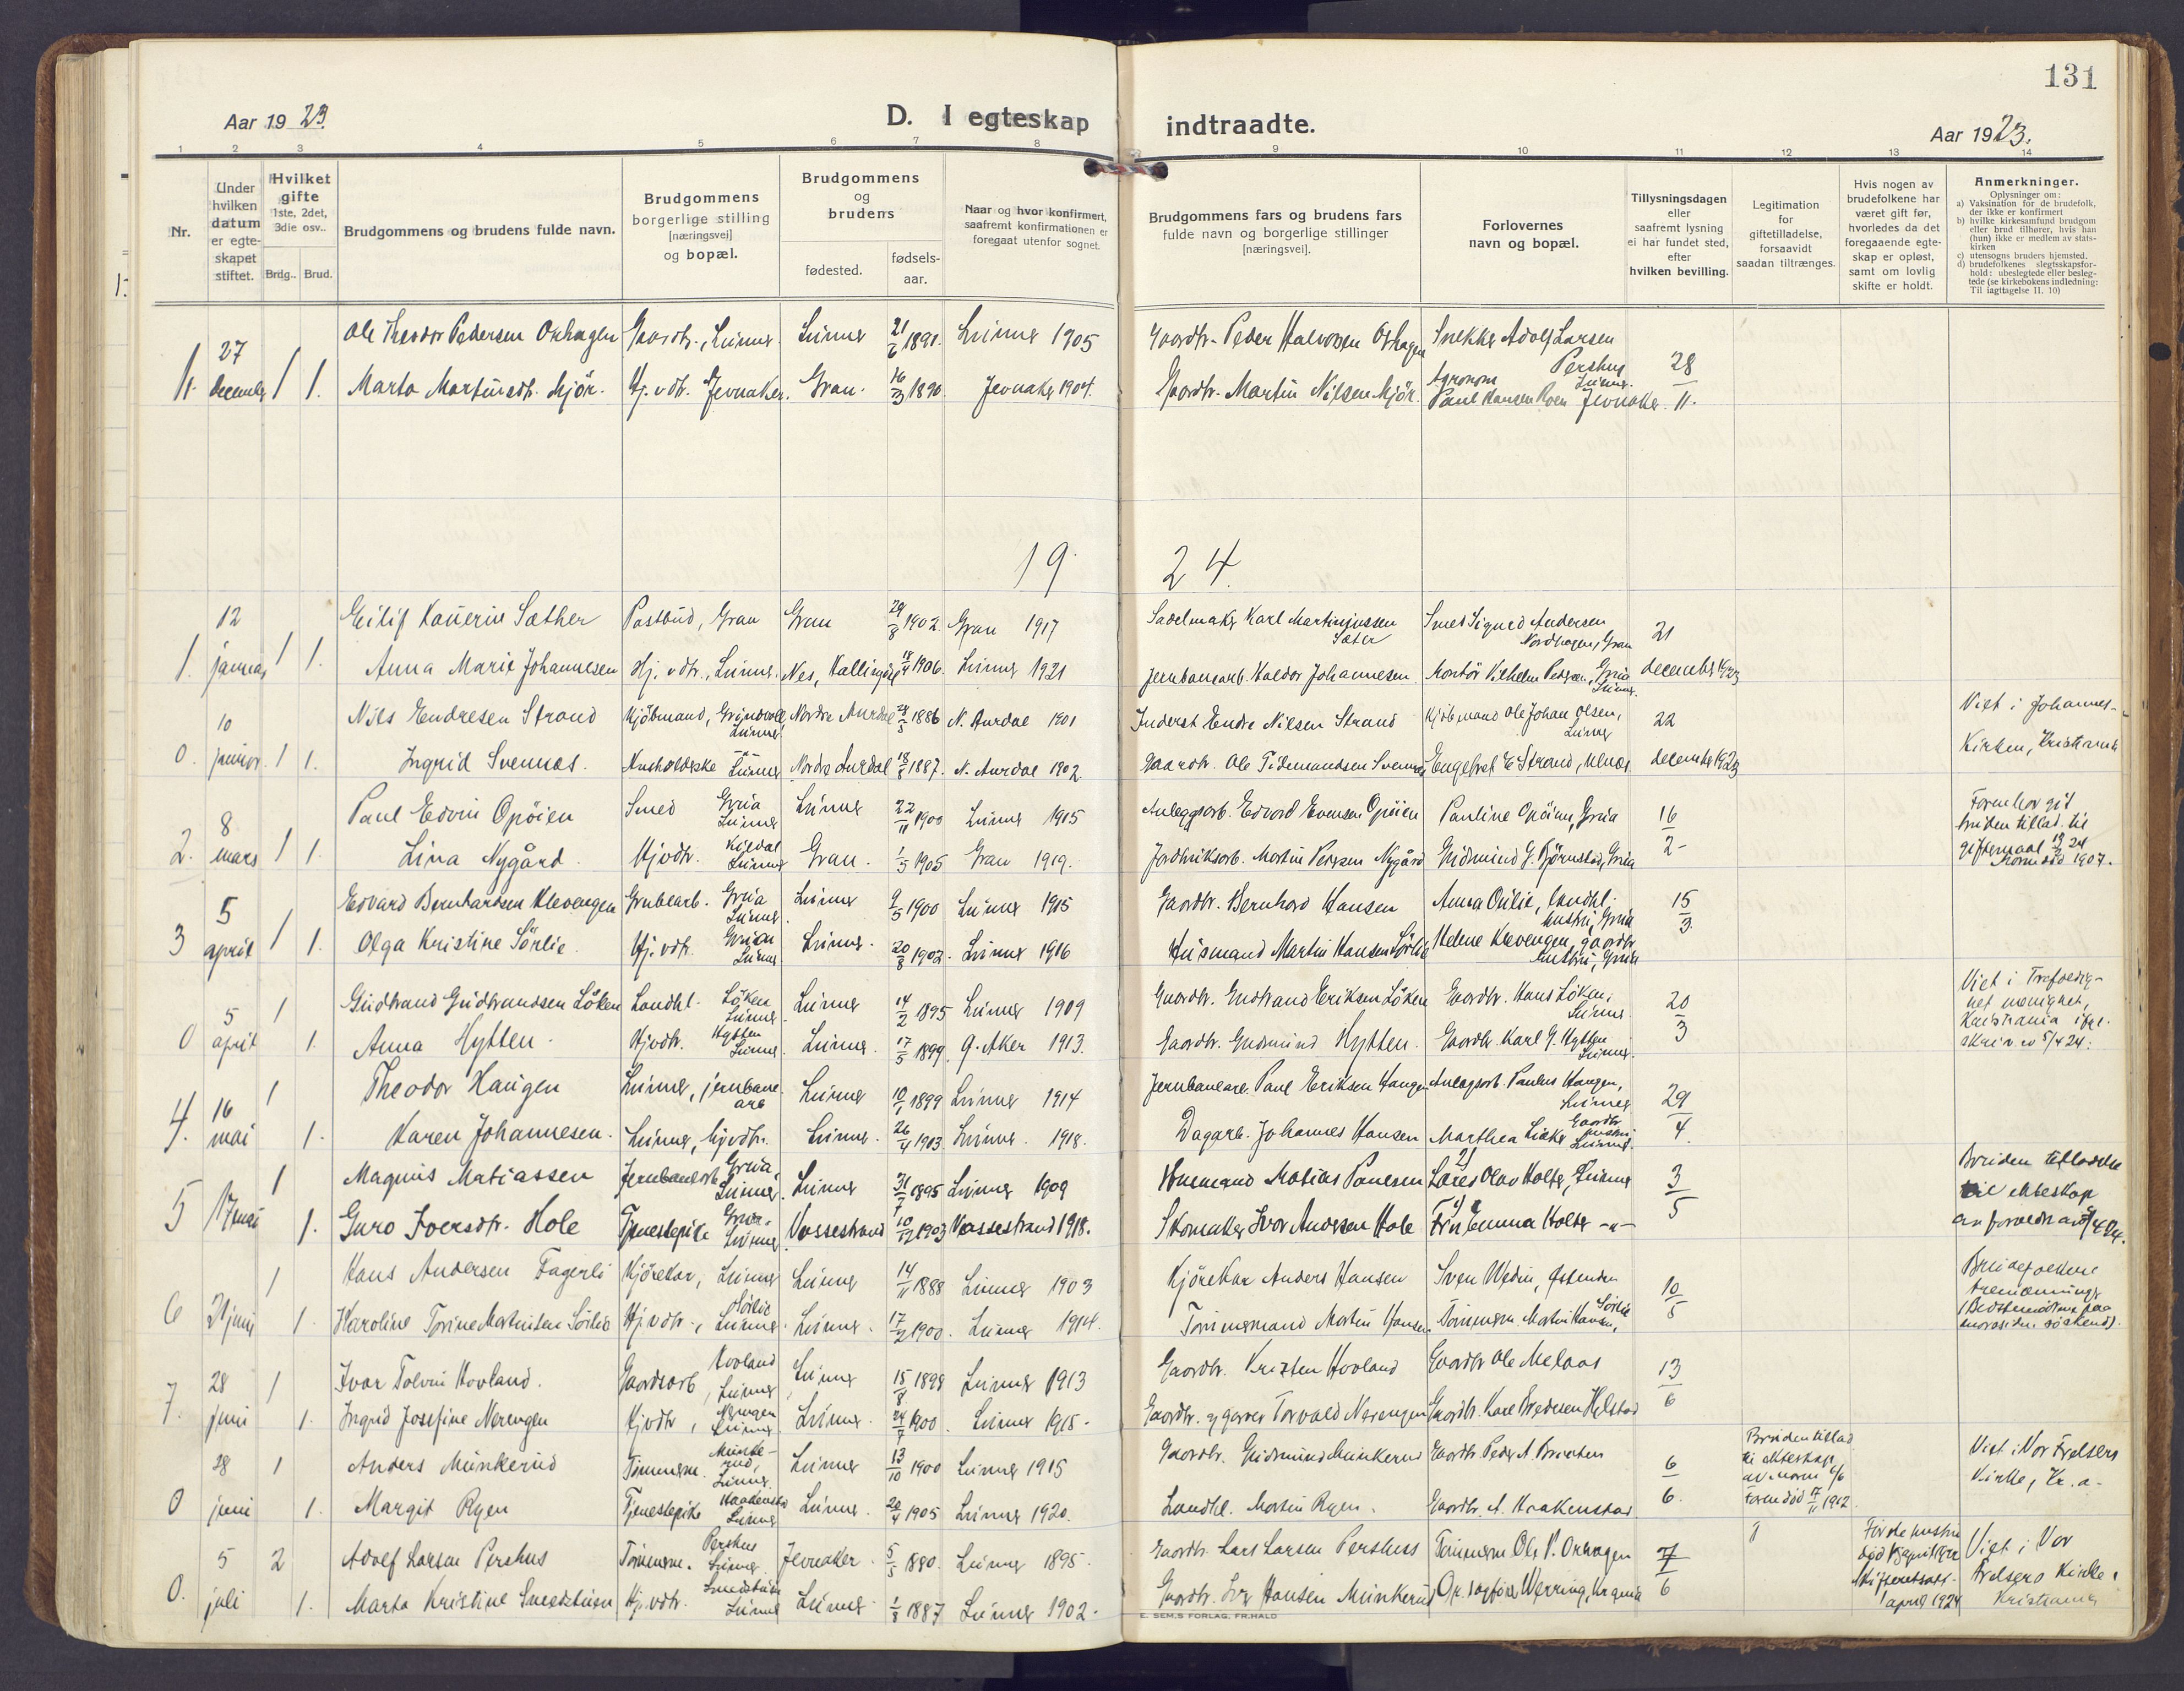 131
Aar 1923.
D. I egteskap indtraadte.
Aar 1923.
1 2 3 4 5 6 7 8 9 10 11 12 13 14
Nr.
Under hvilken datum er egteskapet stiftet.
Hvilket gifte 1ste, 2det, 3die osv..
Brdg.. Brud.
Brudgommens og brudens fulde navn.
Brudgommens borgerlige stilling [næringsvei] og bopæl.
Brudgommens og brudens
fødested.
fødsels-aar.
Naar og hvor konfirmert, saafremt konfirmationen er foregaat utenfor sognet.
Brudgommens fars og brudens fars fulde navn og borgerlige stillinger [næringsvei].
Forlovernes navn og bopæl.
Tillysningsdagen eller saafremt lysning ei har fundet sted, efter hvilken bevilling.
Legitimation for giftetilladelse, forsaavidt saadan tiltrænges.
Hvis nogen av brudefolkene har været gift før, hvorledes da det foregaaende egteskap er opløst, samt om lovlig skifte er holdt.
Anmerkninger.
Oplysninger om:
a) Vaksination for de brudefolk, der ikke er konfirmert
b) hvilke kirkesamfund brudgom eller brud tilhører, hvis han (hun) ikke er medlem av statskirken
c) utensogns bruders hjemsted.
d) brudefolkenes slegtsskapsforhold: ubeslegtede eller beslegtede (se kirkebokens indledning: Til iagttagelse II. 10)
11. 27 december 1 Ole Theodor Pedersen Orhagen Gaardbr., Lunner. Lunner 21/6 1891. Lunner 1905 Gaardbr. Peder Halvorsen Orhagen Snekker Adolf Larsen Pershus Lunner. 28/11.
1. Marta Martinsdtr. Mjör. Hj. v dtr. Jevnaker. Gran. 16/3 1890. Jevnaker 1904. Gaardbr. Martin Nilsen Mjör. Agronom Paul Hansen Roen Jevnaker.
1924.
1. 12 januar 1 Eilif Kauerin Sæther Postbud, Gran Gran 29/8 1902. Gran 1917 Sadelmaker Karl Martinjussen Sæter Smed Sigurd Andersen Nordhagen, Gran 21 december 1923
1. Anna Marie Johannesen Hj. v dtr., Lunner. Nes, Hallingdal 18/4 1906. Lunner 1921 Jernbanearb. Haldor Johannesen Kontor Vilhelm Pedersen, Grua Lunner.
0. 10 januar. 1 Nils Endresen Strand Kjöbmand, Grindvoll Lunner Nordre Aurdal 1886 N. Aurdal 1901 Inderst Endre Nilsen Strand Kjöbmand Ole Johan Olsen, Lunner 22 december 1923 Viet i Johannes-
1. Ingrid Svennes. Husholderske Lunner Nordre Aurdal 1887. N. Aurdal 1902 Gaardbr. Ole Tidemandsen Svennes Engebret E Strand, Ulnes. Kirken, Kristiania
2. 8 mars 1 Paul Edvin Opöien Smed Grua Lunner Lunner 22/11 1900 Lunner 1915 Anleggsarb. Edvard Evensen Opöien Pauline Opöien, Grua 16/2 Faren har git bruden tillad. til giftermaal
1. Lina Nygård. Hj v dtr. Lunner Gran. 1905 Gran 1919. Jordbruksarb. Martin Pedersen Nygård Gudmund G. Björnstad, Grua Moren död 1907.
3 5 april 1 Edvard Bernhardsen Klevengen Grubearb. Grua Lunner. Lunner 9/5 1900 Lunner 1915 Gaardbr. Bernhard Hansen Anna Oulie, landhl. hustru, Grua 15/3.
1. Olga Kristine Sörlie. Hj. v dtr. Grua Lunner Lunner. 20/8 1902. Lunner 1916 Husmand Martin Hansen Sörlie Helene Klevengen, gaardbr hustru, Grua
0 5 april 1 Gudbrand Gudbrandsen Löken Landhl. Löken Lunner. Lunner 14/2 1895 Lunner 1909 Gaardbr. Gudbrand Eriksen Löken Gaardbr. Hans Löken, Lunner. 20/3 Viet i Trefoldighet menighet, Kristiania
1. Anna Hytten. Hj v dtr. Hytten Lunner. Lunner. 17/5 1899 Ø. Aker 1913. Gaardbr. Gudmund Hytten. Gaardbr. Karl G. Hytten Lunner.
4. 16 mai 1 Theodor Haugen Lunner, jernbanearb Lunner 10/1 1899 Lunner 1914 Jernbanearb. Paul Eriksen Haugen Anlegsarb. Paulus Haugen, Lunner 29/4.
1. Karen Johannesen. Lunner, hj v dtr. Lunner. 26/4 1903. Lunner. 1918. Dagarb. Johannes Hansen Marthea Gaardbr hustru Lunner.
5 17 mai 1 Magnus Matiassen Jernbanearb Grua, Lunner. Lunner 31/7 1895 Lunner 1909 Husmand Matias Paulsen Lærer Olav Holter, Lunner 3/5 Bruden tilladelse til ekteskap
1. Guro Iversdtr. Hole Tjenestepike Grua. Lunner Vossestrand 10/12 1903 Vossestrand 1918. Skomaker Ivar Andersen Hole Fru Emma Holter -"-
6 21 juni 1 Hans Andersen Fagerli Kjörekar, Lunner Lunner 14/11 1888 Lunner 1903 Kjörekar Anders Hansen Sven Wedin, Østenden 10/5 Brudefolkene tremænninge
1. Karoline Torine Martinsen Sörlie Hj v dtr., Sörlie Lunner. Lunner. 17/2 1900. Lunner 1914. Tömmermand Martin Hansen. Tömmerm. Martin Hansen, Sörlie
7. 28 juni 1 Ivar Tolvin Hovland. Gaardsarb, Hovland Lunner Lunner 15/8 1898 Lunner 1913 Gaardbr. Kristen Hovland Gaardbr Ole Melaas 13/6
1. Ingrid Josefine Nerengen Hj v dtr, Nerengen Lunner Lunner. 24/7 1900. Lunner 1915. Gaardbr. og garver Torvald Nerengen Gaardbr. Kare Bredesen Helstad
0 28 juni 1 Anders Munkerud Tömmerm. Munkerud, Lunner. Lunner 13/10 1900 Lunner 1915 Gaardbr. Gudmund Munkerud Gaardbr. Peder A. 6/6. Bruden tillad til ekteskap av moren 6/6 Viet i Vor Frelsers Kirke, Kr.a.
1. Margit Ryen Tjenestepike Haakenstad Lunner Lunner. 20/4 1905 Lunner 1920. Landhl. Martin Ryen. Gaardbr. A. Haakenstad Faren död 1912.
0. 5 juli 2 Adolf Larsen Pershus Tömmerm. Pershus Lunner Jevnaker. 5/5 1880. Lunner 1895. Gaardbr. Lars Larsen Pershus Tömmerm Ole P. Orhagen 7/6 Første hustru död Skifteretsatt. april 1924 Viet i Vor Frelsers Kirke, Kristiania
1. Marta Kristine Smedstuen Hj. v dtr. Smedstuen Lunner Lunner. 1/8 1887 Lunner 1902. Gaardbr. Iver Hansen Munkerud Or. sagförer Werring, Kr.ania
E. SEM,S FORLAG, FR.HALD